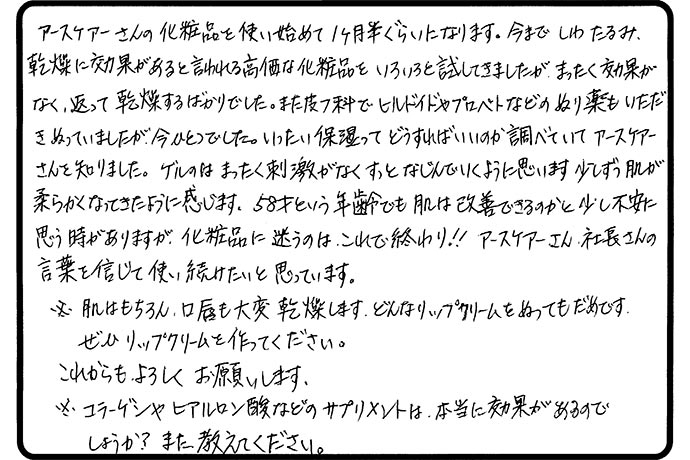 アースケアーさんの化粧品を使い始めて1ヶ月半ぐらいになります。今まで しわ たるみ、
乾燥に効果があると言われる高価な化粧品を いろいろと試してきましたが、まったく効果が
なく、返って 乾燥するばかりでした。また皮フ科で ヒルドイドやプロペトなどの ぬり薬も いただ
き ぬっていましたが、今ひとつでした。いったい 保湿って どうすればいいのか 調べていて アースケアー
さんを知りました。ゲルのは まったく刺激がなく すっと なじんでいくように思います 少しずつ 肌が
柔らかくなってきたように感じます。58才という 年齢でも 肌は 改善できるのかと 少し不安に
思う時がありますが、化粧品に 迷うのは これで終わり!! アースケアーさん、社長さんの
言葉を信じて 使い続けたいと 思っています。
※ 肌はもちろん、口唇も大変 乾燥します、どんなリップクリームをぬってもだめです、
ぜひ リップクリームを作ってください。
これからも よろしく お願いします、
※ コラーゲンや ヒアルロン酸などの サプリメントは、本当に効果があるので
しょうか? また 教えてください。